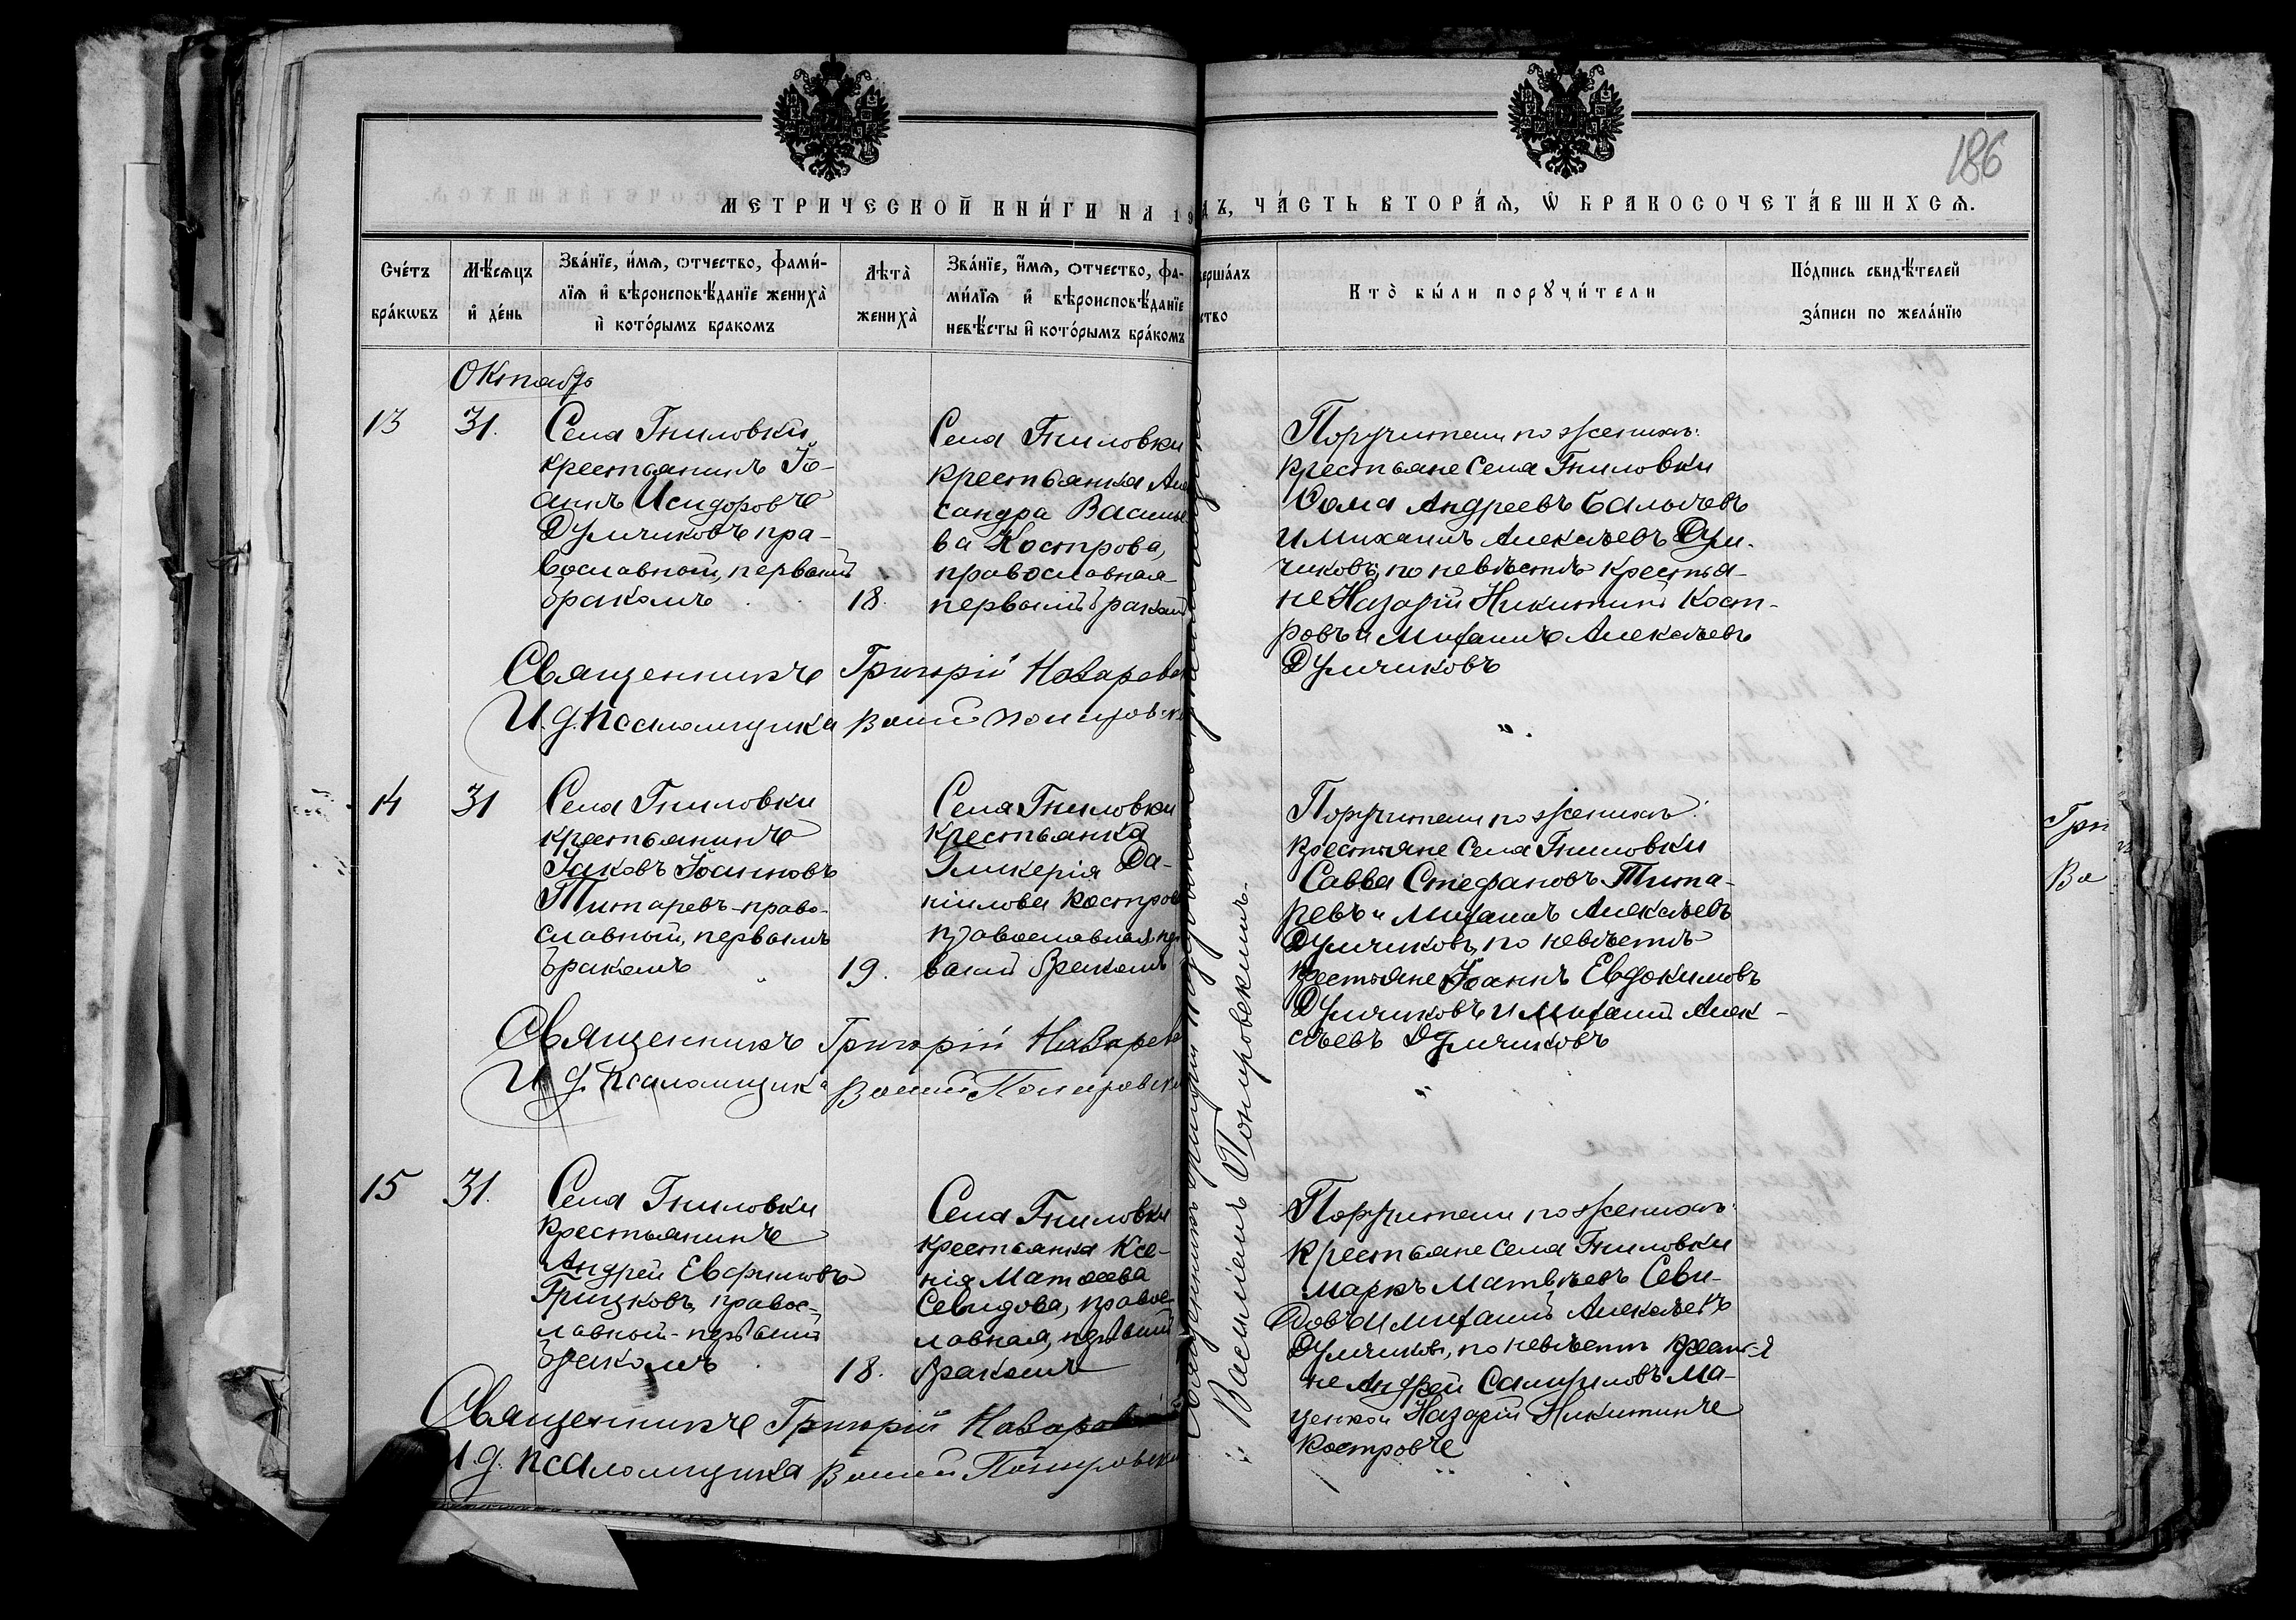 186
МЕТРИЧЕСКОЙ КНИ́ГИ НА 19
ДЪ, ЧА́СТЬ ВТОРА́Ѧ, Ѡ БРАКОСОЧЕТА́ВШИХСѦ.
Сче́тъ
бра́кѡвъ
Мѣ́сѧцъ
и҆ де́нь
Зва́нїе, и҆́мѧ, ѻтчество, фами́-
лїѧ и҆ вѣроисповѣ́данїе жениха̀
и҆ кото́рымъ бракомъ
Лѣта̀
жениха̀
Зва́нїе, и҆́мѧ, ѻтчество, фа-
ми́лїѧ и҆ вѣроисповѣ́данїе
невѣ́сты и҆ кото́рымъ бра́комъ
верша́лъ
ство
Кто̀ бы́ли порꙋчи́тели
По́дпись свидѣ́телей
за́писи по жела́нїю
Октябрь
13
31.
Села Гниловки
крестьянинъ Іо-
аннъ Исидоровъ
Думчиковъ пра-
вославный, первымъ
бракомъ
18.
Села Гниловки
крестьянка Але
сандра Василье
ва Кострова,
православная
первымъ бракомъ
Поручители по женихѣ:
крестьяне села Гниловки
Ѳома Андреевъ Балычевъ
и Михаилъ Алексѣевъ Дум-
чиковъ, по невѣстѣ крестья-
не Назарій Никитинъ Кост-
ровъ и Михаилъ Алексѣевъ
Думчиковъ
Священникъ Григорій
И. д. псаломщика Понировск
14
31
Села Гниловки
крестьянинъ
Іаковъ Іоанновъ
Титаревъ право-
славный, первымъ
бракомъ
19.
Села Гниловки
крестьянка
Гликерія Да-
ніилова Костров
православная пер
вымъ бракомъ
Поручители по женихѣ:
крестьяне села Гниловки
Савва Стефановъ Тита-
ревъ и Михаилъ Алексѣевъ
Думчиковъ, по невѣстѣ
крестьяне Іоаннъ Евдокимовъ
Думчиковъ и Михаилъ Алек-
сѣевъ Думчиковъ
Священникъ Григорій
И. д. псаломщика Понировск
Гри
Ва
15
31.
Села Гниловки
крестьянинъ
Андрей Евфимовъ
Грицковъ, правос-
лавной первымъ
бракомъ
18.
Села Гниловки
крестьянка Ксе-
нія Матѳеева
Севидова, правос-
лавная, первымъ
бракомъ
Поручители по женихѣ:
крестьяне села Гниловки
Маркъ Матвѣевъ Севи-
довъ и Михаилъ Алексѣевъ
Думчиковъ, по невѣстѣ крестья
не Андрей Ма-
ценко и Назарій Никитинъ
Костровъ
Священникъ Григорій
И д. псаломщика Понировск
Священникъ Григорій
Василіемъ Понировскимъ